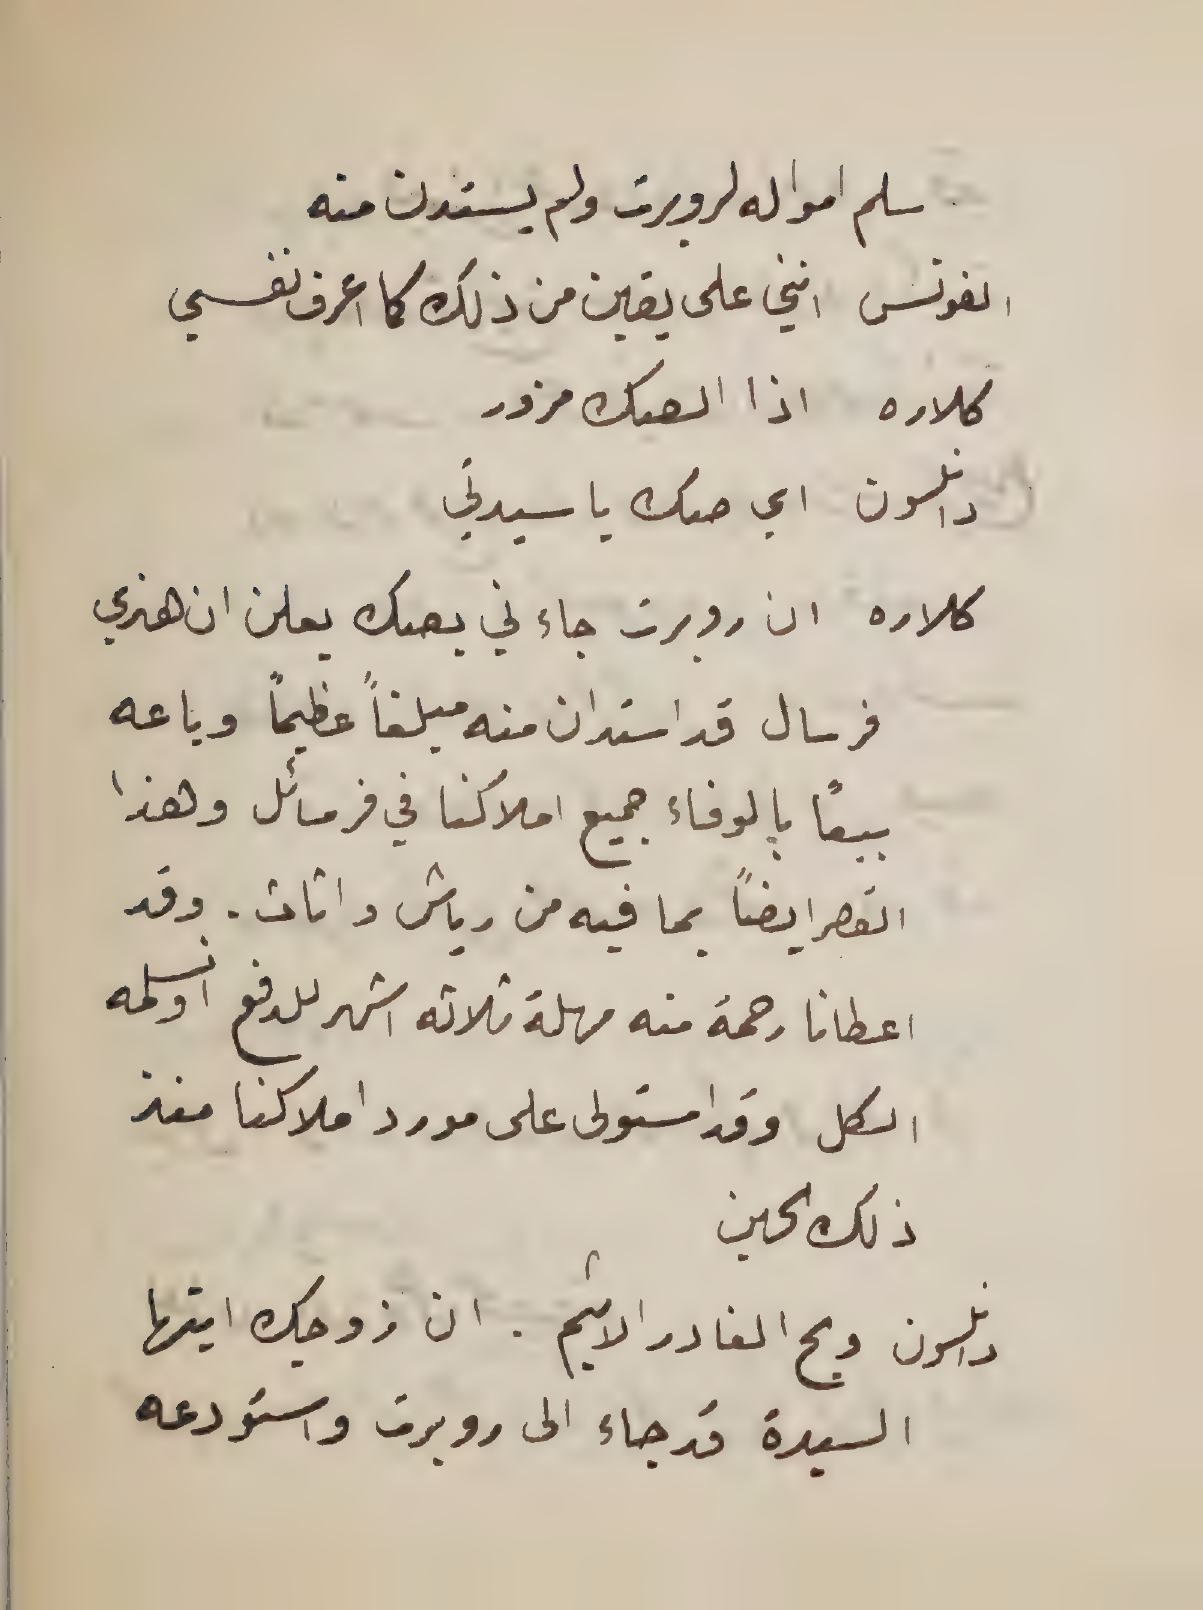 سلم امواله لروبرت ولم يستدن منه
الفونس انني على يقين من ذلك كما اعرف نفسي
كلاره اذا الصك مزور
دانلسون اي صك يا سيدتي
كلاره ان روبرت جاءني بصك يعلن ان هنري
فرسال قد استدان منه مبلغاً عظيماً وباعه
بيعًا بالوفاء جميع املاكنا في فرسائل وهذا
القصر ايضاً بما فيه من رياش واثاث. وقد
اعطانا رحمة منه مهلة ثلاثه اشهر للدفع او نسلمه
الكل وقد استولى على مورد املاكنا منذ
ذلك الحين
دانلسون ويح الغادر الاثيم. ان زوجك ايتها
السيدة قد جاء الى روبرت واستودعه